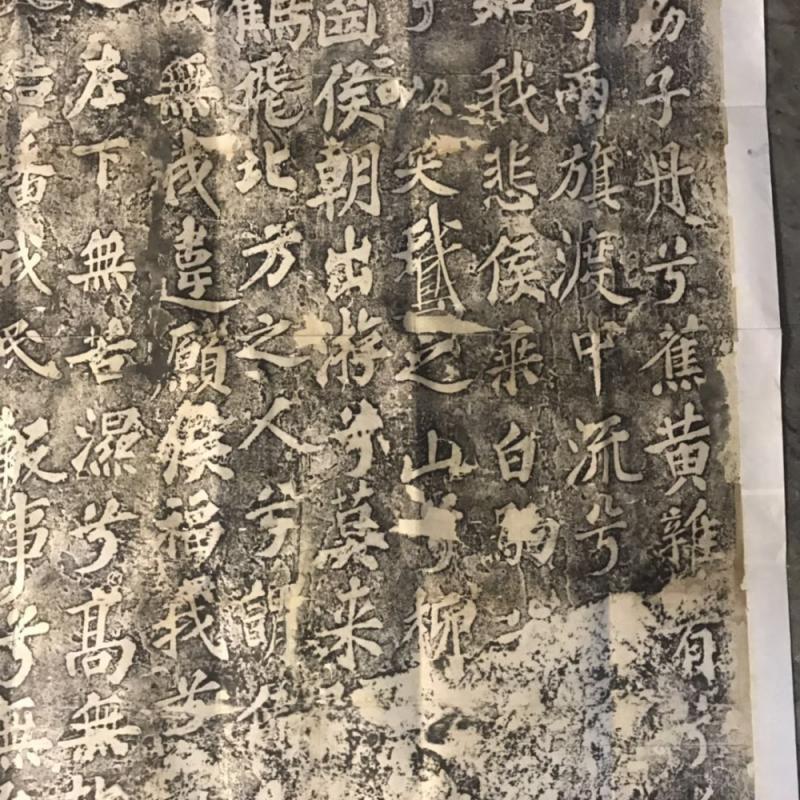 子丹兮蕉黃雜肴兮
兮兩旗渡中流兮
知我悲侯乘白駒
兮以笑鵝之山兮柳之
齒侯朝出游兮莫來
鶴飛北方之人兮
侯無我違願侯福我
左下無苦濕兮高無
結蟠我民報事兮無